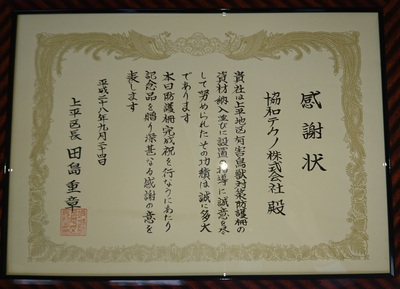 感謝状
協和テクノ株式会社 殿
貴社は上平地区有害鳥獣対策防護柵の
資材納入並びに設置指導に誠意を尽
して努められたその功績は誠に多大
であります
本日防護柵完成祝を行なうにあたり
記念品を贈り深甚なる感謝の意を
表します
平成二十八年九月二十四日
上平区長 田島重章